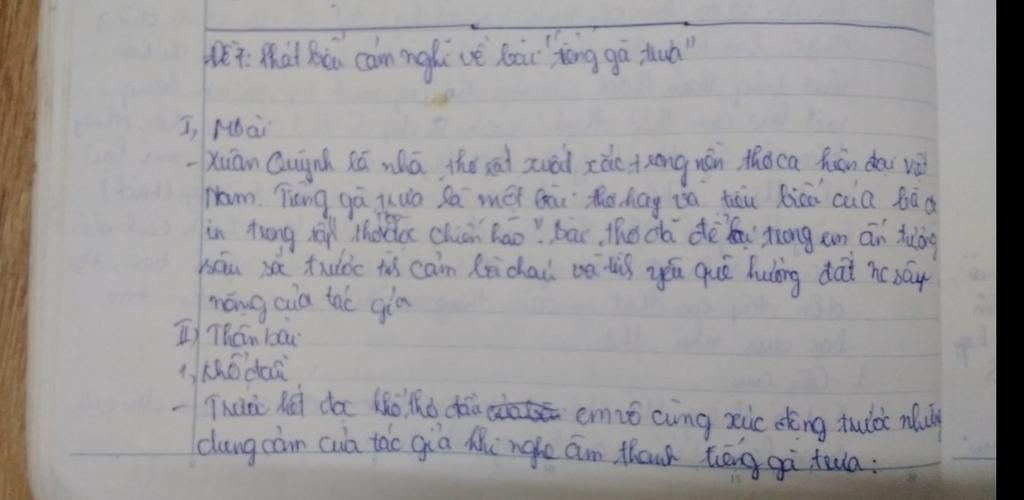 Đề 7: Phát biểu cảm nghĩ về bài "tiếng gà trưa"
I, Mbài
- Xuân Quỳnh là nhà thơ rất xuất xắc trong nền thơ ca hiện đại việt
Nam. Tiếng gà trưa là một bài thơ hay và tiêu biểu của bà
in trong tập thơ dọc chiến hào". bài thơ đã để lại trong em ấn tượng
sâu sắc trước t/c cảm bà cháu và t/y yêu quê hương đất nc sâu
nặng của tác giả
II, Thân bài
1, Khổ đầu
- Trước hết đọc khổ thơ đầu em vô cùng xúc động trước những
dung cảm của tác giả khi nghe âm thanh tiếng gà trưa: